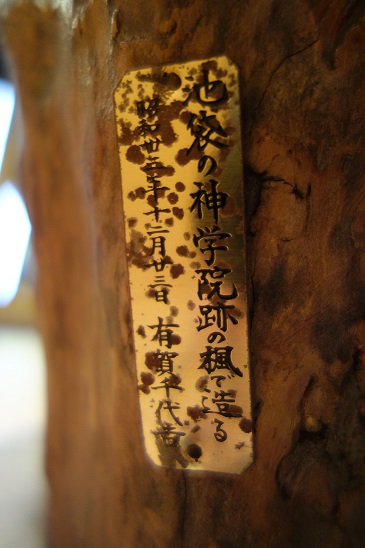 池袋の神学院跡の楓で造る
昭和廿五年十二月廿三日 有賀千代吉